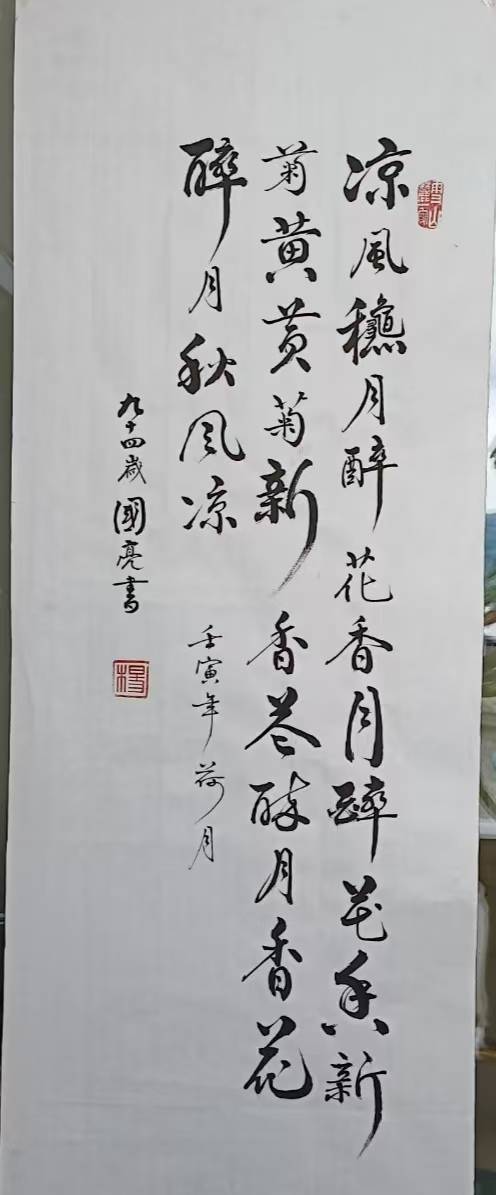 凉風穐月醉花香月醉花香新
菊黄黄菊新香花醉月香花
醉月秋风凉
壬寅年荷月
九十四歲國亮書
楊